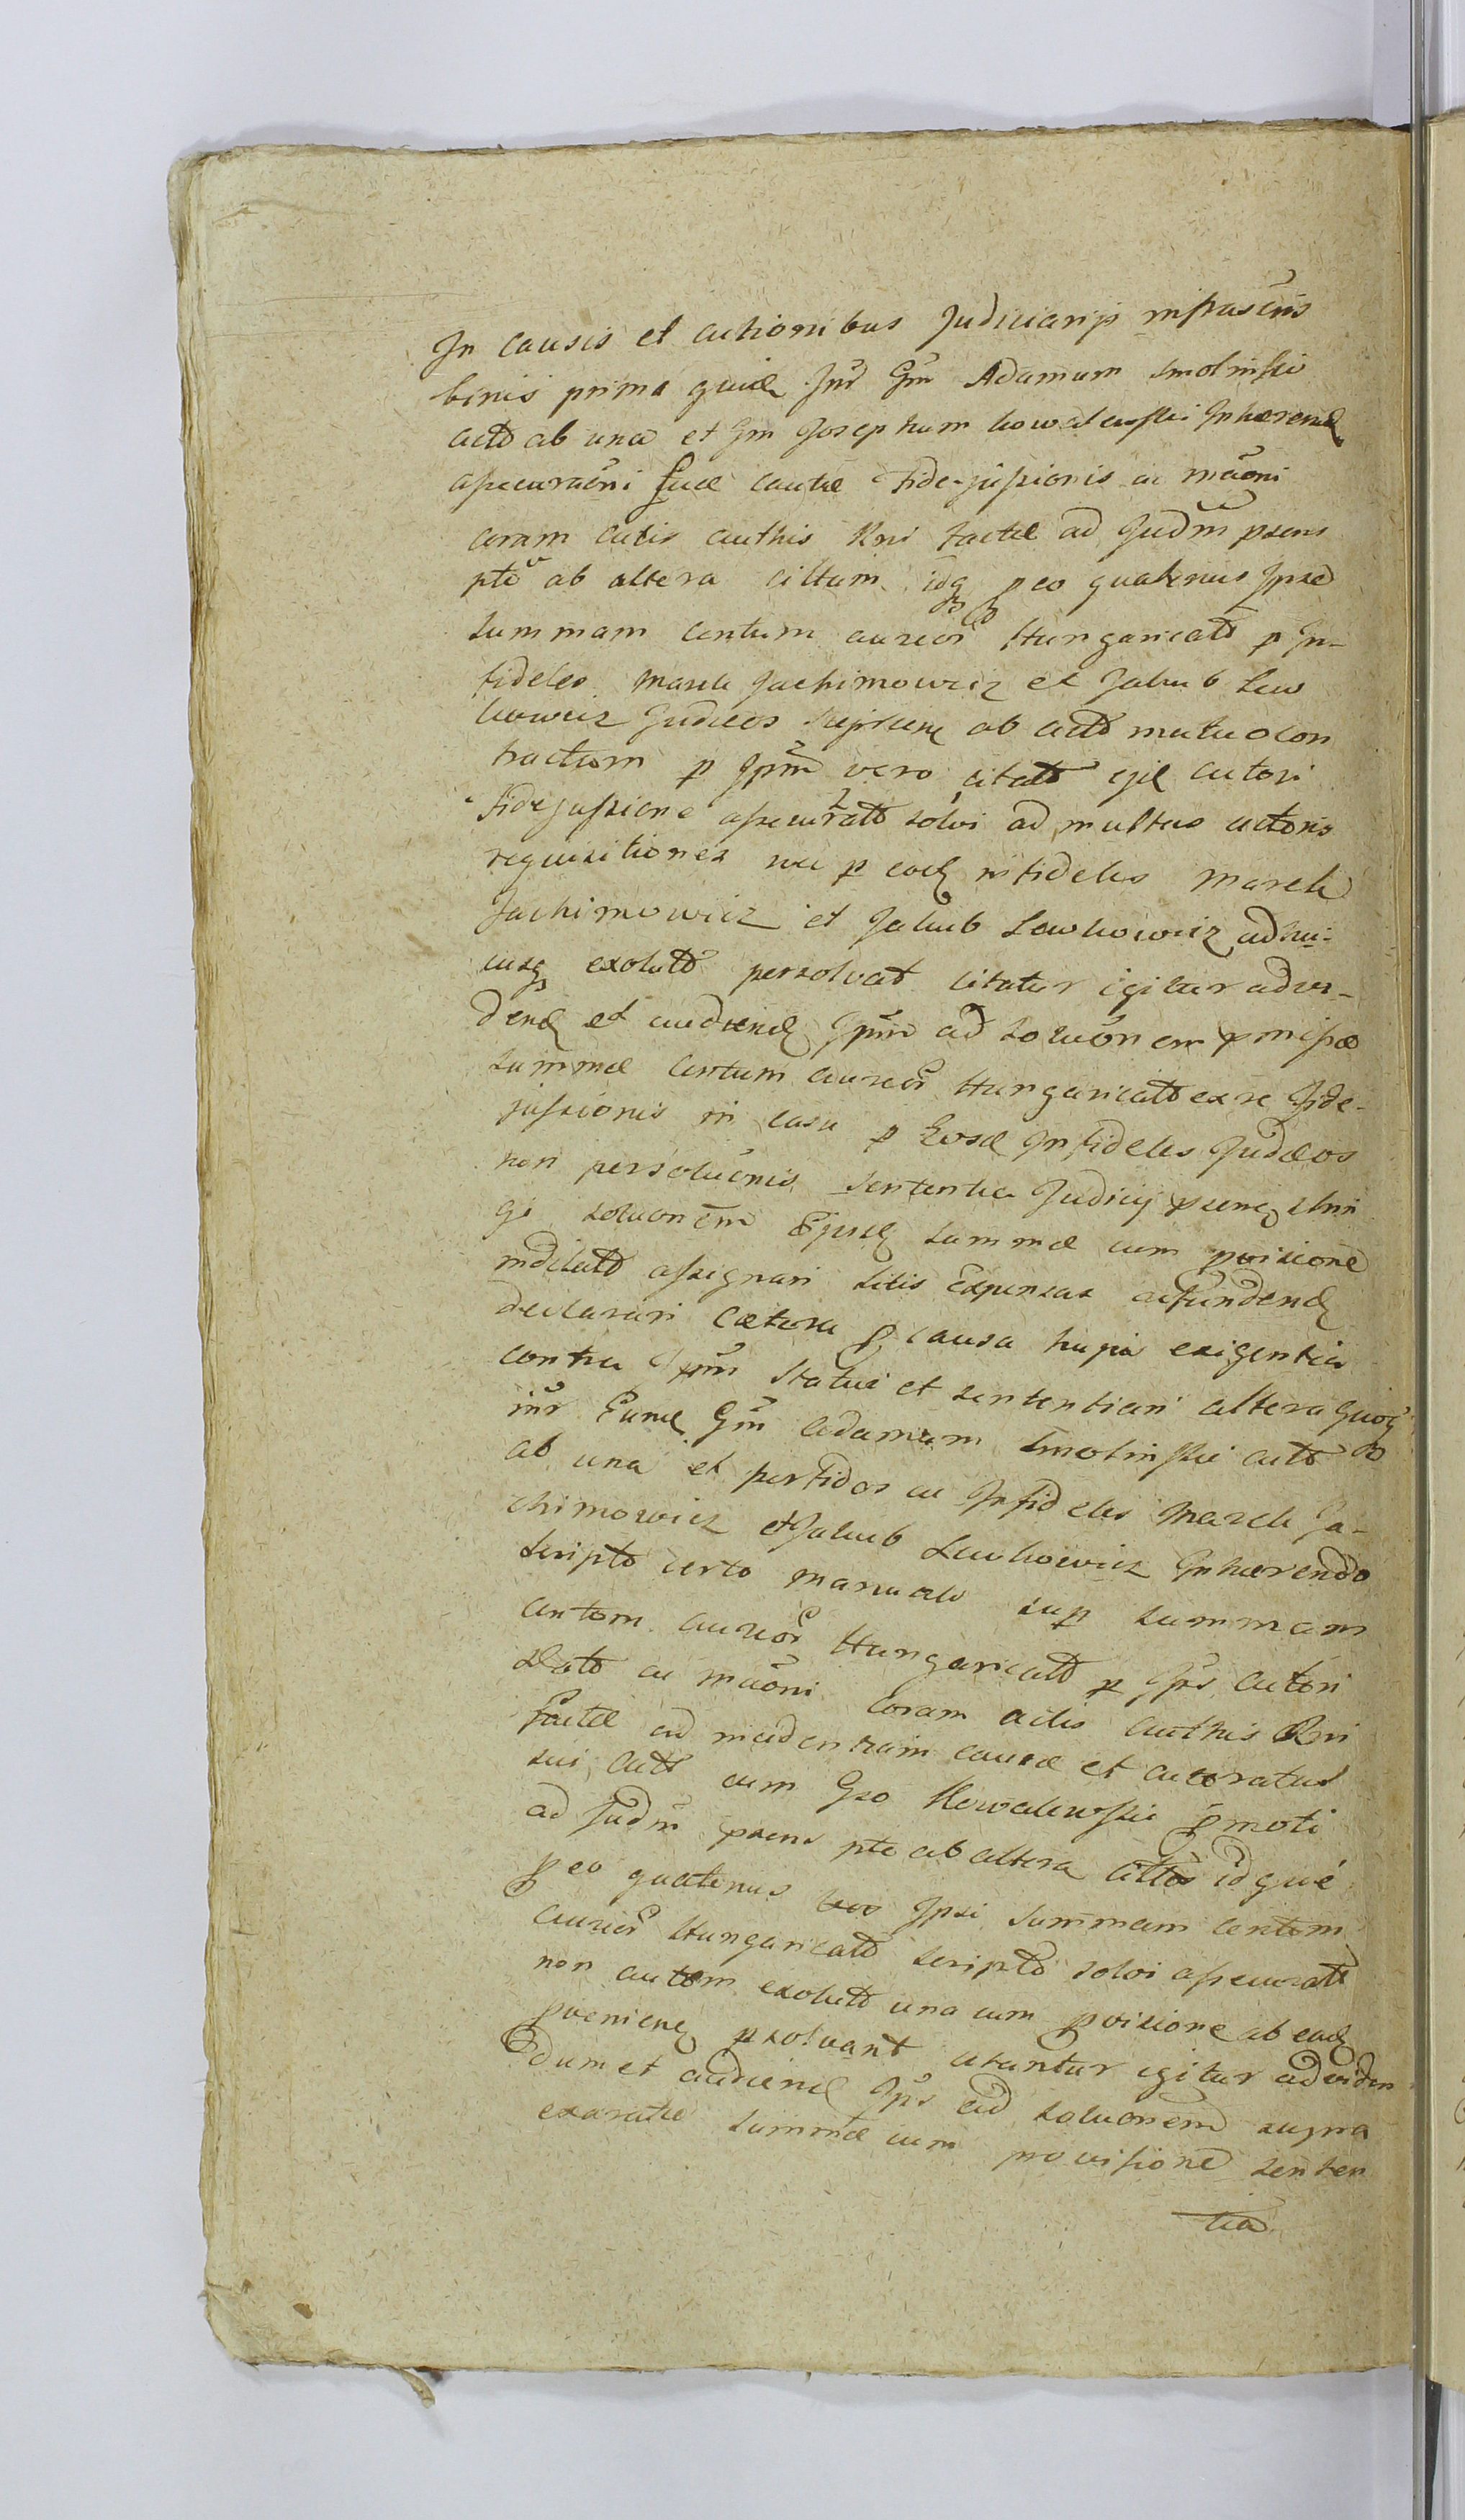 In causis et actionibus Judiciarijs infrascris
binis prima quide Intr Gm Adamum Smolinski
actō ab una et Gm Josephum Kowalewski Inhærend
assecuraōni suæ cautæ Fide-jussionis ac mãoni
coram actis authis Rni factæ ad Judm psens
ptē ab altera cittum idq p eo quatenus Ipse
summam centum aureor Hungaricalō p In-
fideles Marek Jachimowicz et Jakub Lew
kowicz Judæos ab actō mutuo con
tractam p Ipm vero citatō ejd actori
Fidejussione assecuratō solvi ad multas actoris
requisitiones nec p eosd infideles Marek
Jachimowicz et Jakub Lewkowicz adhu-
cusq exolutō persolvat citatur igitur ad vi-
dend et audiend Ipm ad soluōnem pmissæ
summæ centum aureor Hungaricalō ex re Fide-
jussionis in casu p Eosd Infideles Judæos
non persoluōnis sententia Judicij psens strin
gi soluonem Ejusd summæ cum pvisione
indilatō assignari litis expensas refundend
declarari cætera p causa supra exigentia
contra Ipm statui et sententiari altera quoq
intr Eund Gm Adamum Smolinski actō
ab una et perfidos ac Infideles Marek Ja-
chimowicz et Jakub Lewkowicz Inhærendo
scripto certo manuali sup summam
centum aureor Hungaricalō p Ips actori
datō ac mãoni coram actis authis Rni
factæ ad incidentiam causæ et actoratus
sui actō cum Gso Kowalewski pmoti
ad Judm psens pte ab altera cittōs idque
p eo quatenus Ipsi summam centum
aureor Hungaricalō scriptō solvi assecuratō
non autem exolutō una cum pvisione ab ead
pveniend psolvant citantur igitur ad viden
dum et audiend Ips ad soluonem supra
exaratæ summæ cum provisione senten
tia